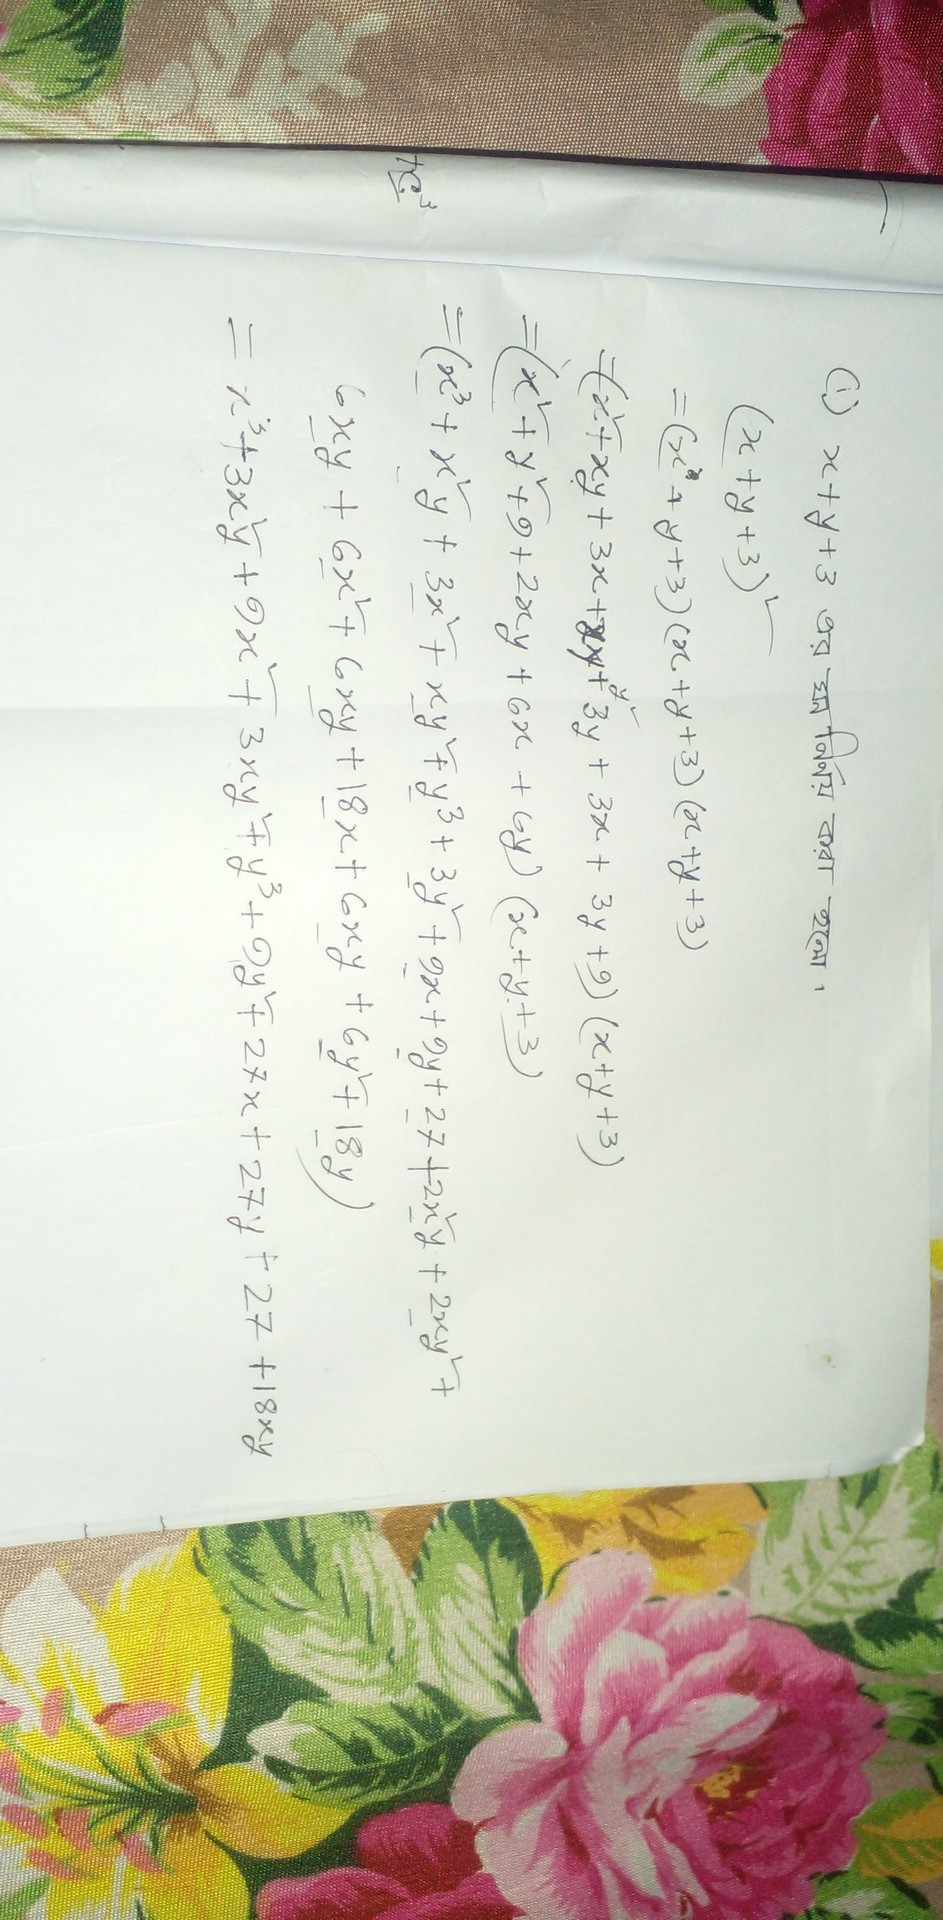 (i) x+y+3 এর ঘন নির্ণয় করা হলো।
(x+y+3)²
=(x+y+3)(x+y+3)(x+y+3)
=(x²+xy+3x+xy+y²+3y+3x+3y+9)(x+y+3)
=(x²+y²+9+2xy+6x+6y)(x+y+3)
=(x³+x²y+3x²+xy²+y³+3y²+9x+9y+27+2x²y+2xy²+
6xy+6x²+6xy+18x+6xy+6y²+18y)
=x³+3x²y+9x²+3xy²+y³+9y²+27x+27y+27+18xy